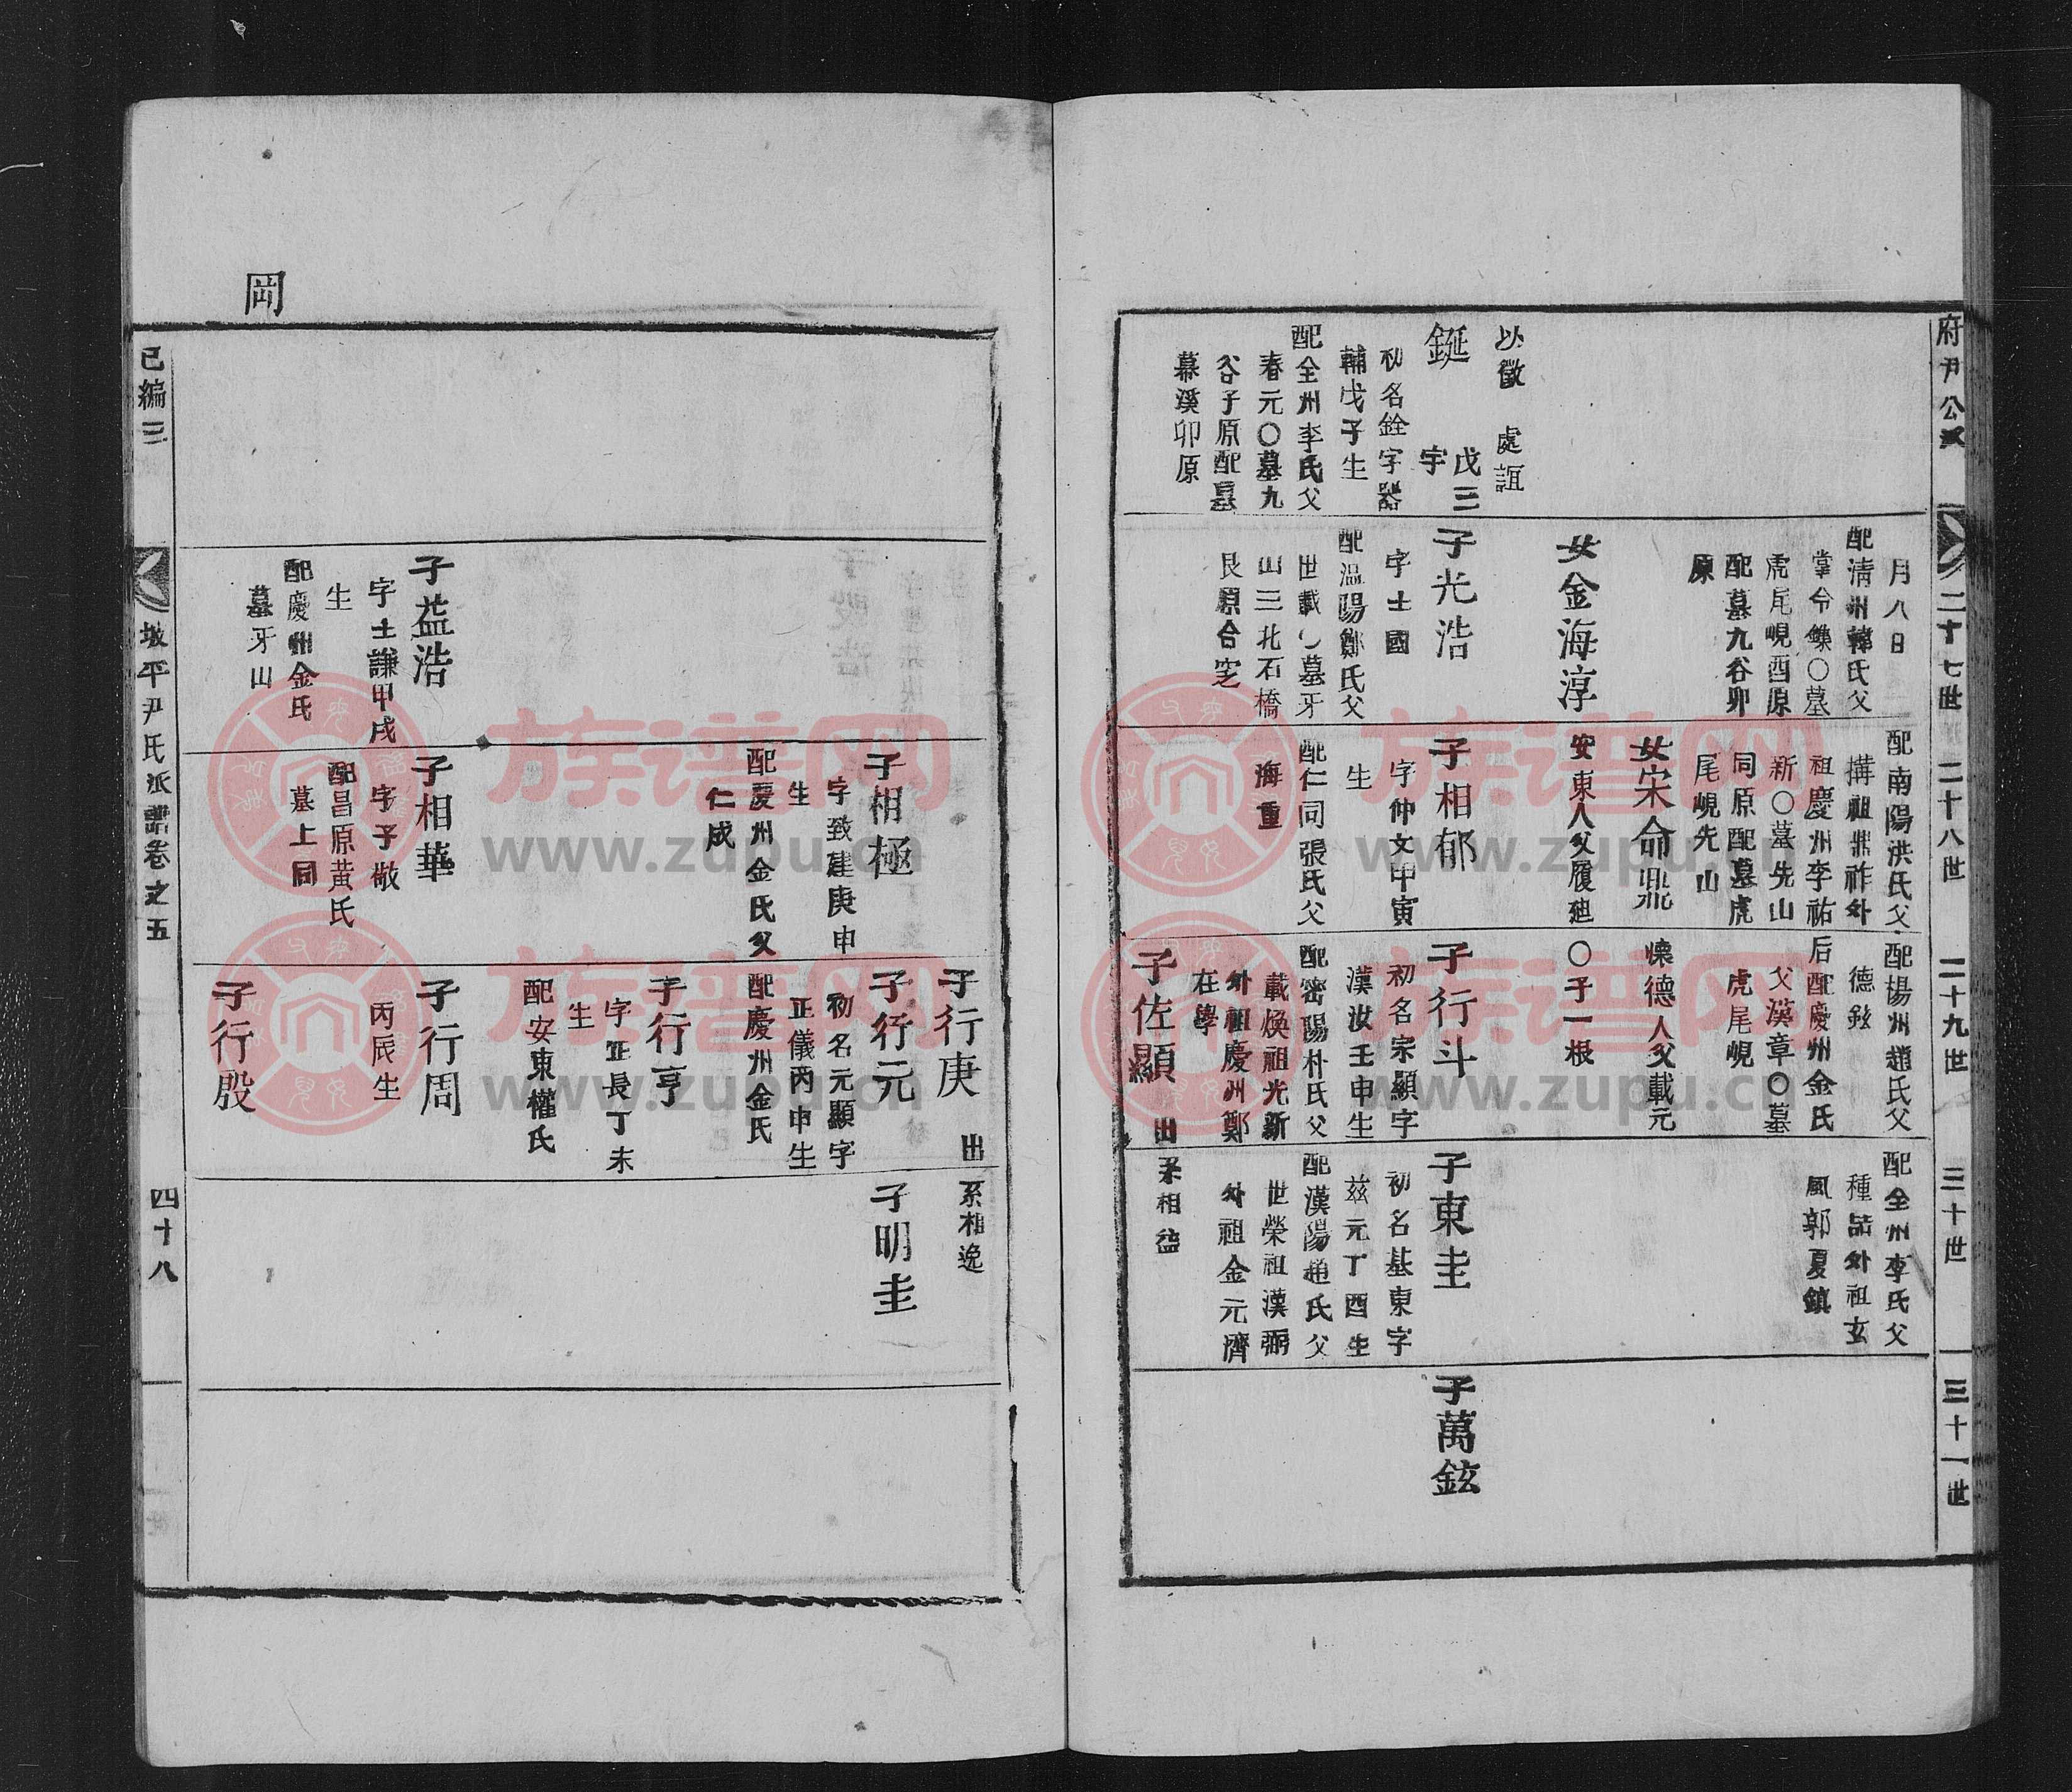 府尹公派
二十七世
二十八世
二十九世
三十世
三十一世
以徵 處誼
鋋 戊三
字
初名銓字器
輔戊子生
配全州李氏父
春元〇墓九
谷子原配墓
慕溪卯原
月八日
配清州韓氏父
掌令鏶〇墓
虎尾峴酉原
配墓九谷卯
原
女金海淳
子光浩
字士國
配溫陽鄭氏父
世載〇墓牙
山三北石橋
艮原合窆
配南陽洪氏父
搆祖鼎祚外
祖慶州李祐
新〇墓先山
同原配墓虎
尾峴先山
女宋命鼎
安東人父履廸
子相郁
字仲文甲寅
生
配仁同張氏父
海重
配楊州趙氏父
德鉉
后配慶州金氏
父漢章〇墓
虎尾峴
懷德人父載元
〇子一根
子行斗
初名宗顯字
漢汝壬申生
配密陽朴氏父
載煥祖光新
外祖慶州鄭
在學
子佐顯 出
配全州李氏父
種喆外祖玄
風郭夏鎮
子東圭
初名基東字
茲元丁酉生
配漢陽趙氏父
世榮祖漢弼
外祖金元濟
系相益
子萬鉉
岡
子益浩
字士謙甲戌
生
配慶州金氏
墓牙山
子相極
字致建庚申
生
配慶州金氏父
仁成
子相華
字子敬
配昌原黃氏
墓上同
子行庚 出
子行元
初名元顯字
正儀丙申生
配慶州金氏
子行亨
字正長丁未
生
配安東權氏
子行周
丙辰生
子行殷
系相逸
子明圭
已編三
坡平尹氏派譜卷之五
四十八
族谱网
www.zupu.cn
族谱网
www.zupu.cn
族谱网
www.zupu.cn
族谱网
www.zupu.cn